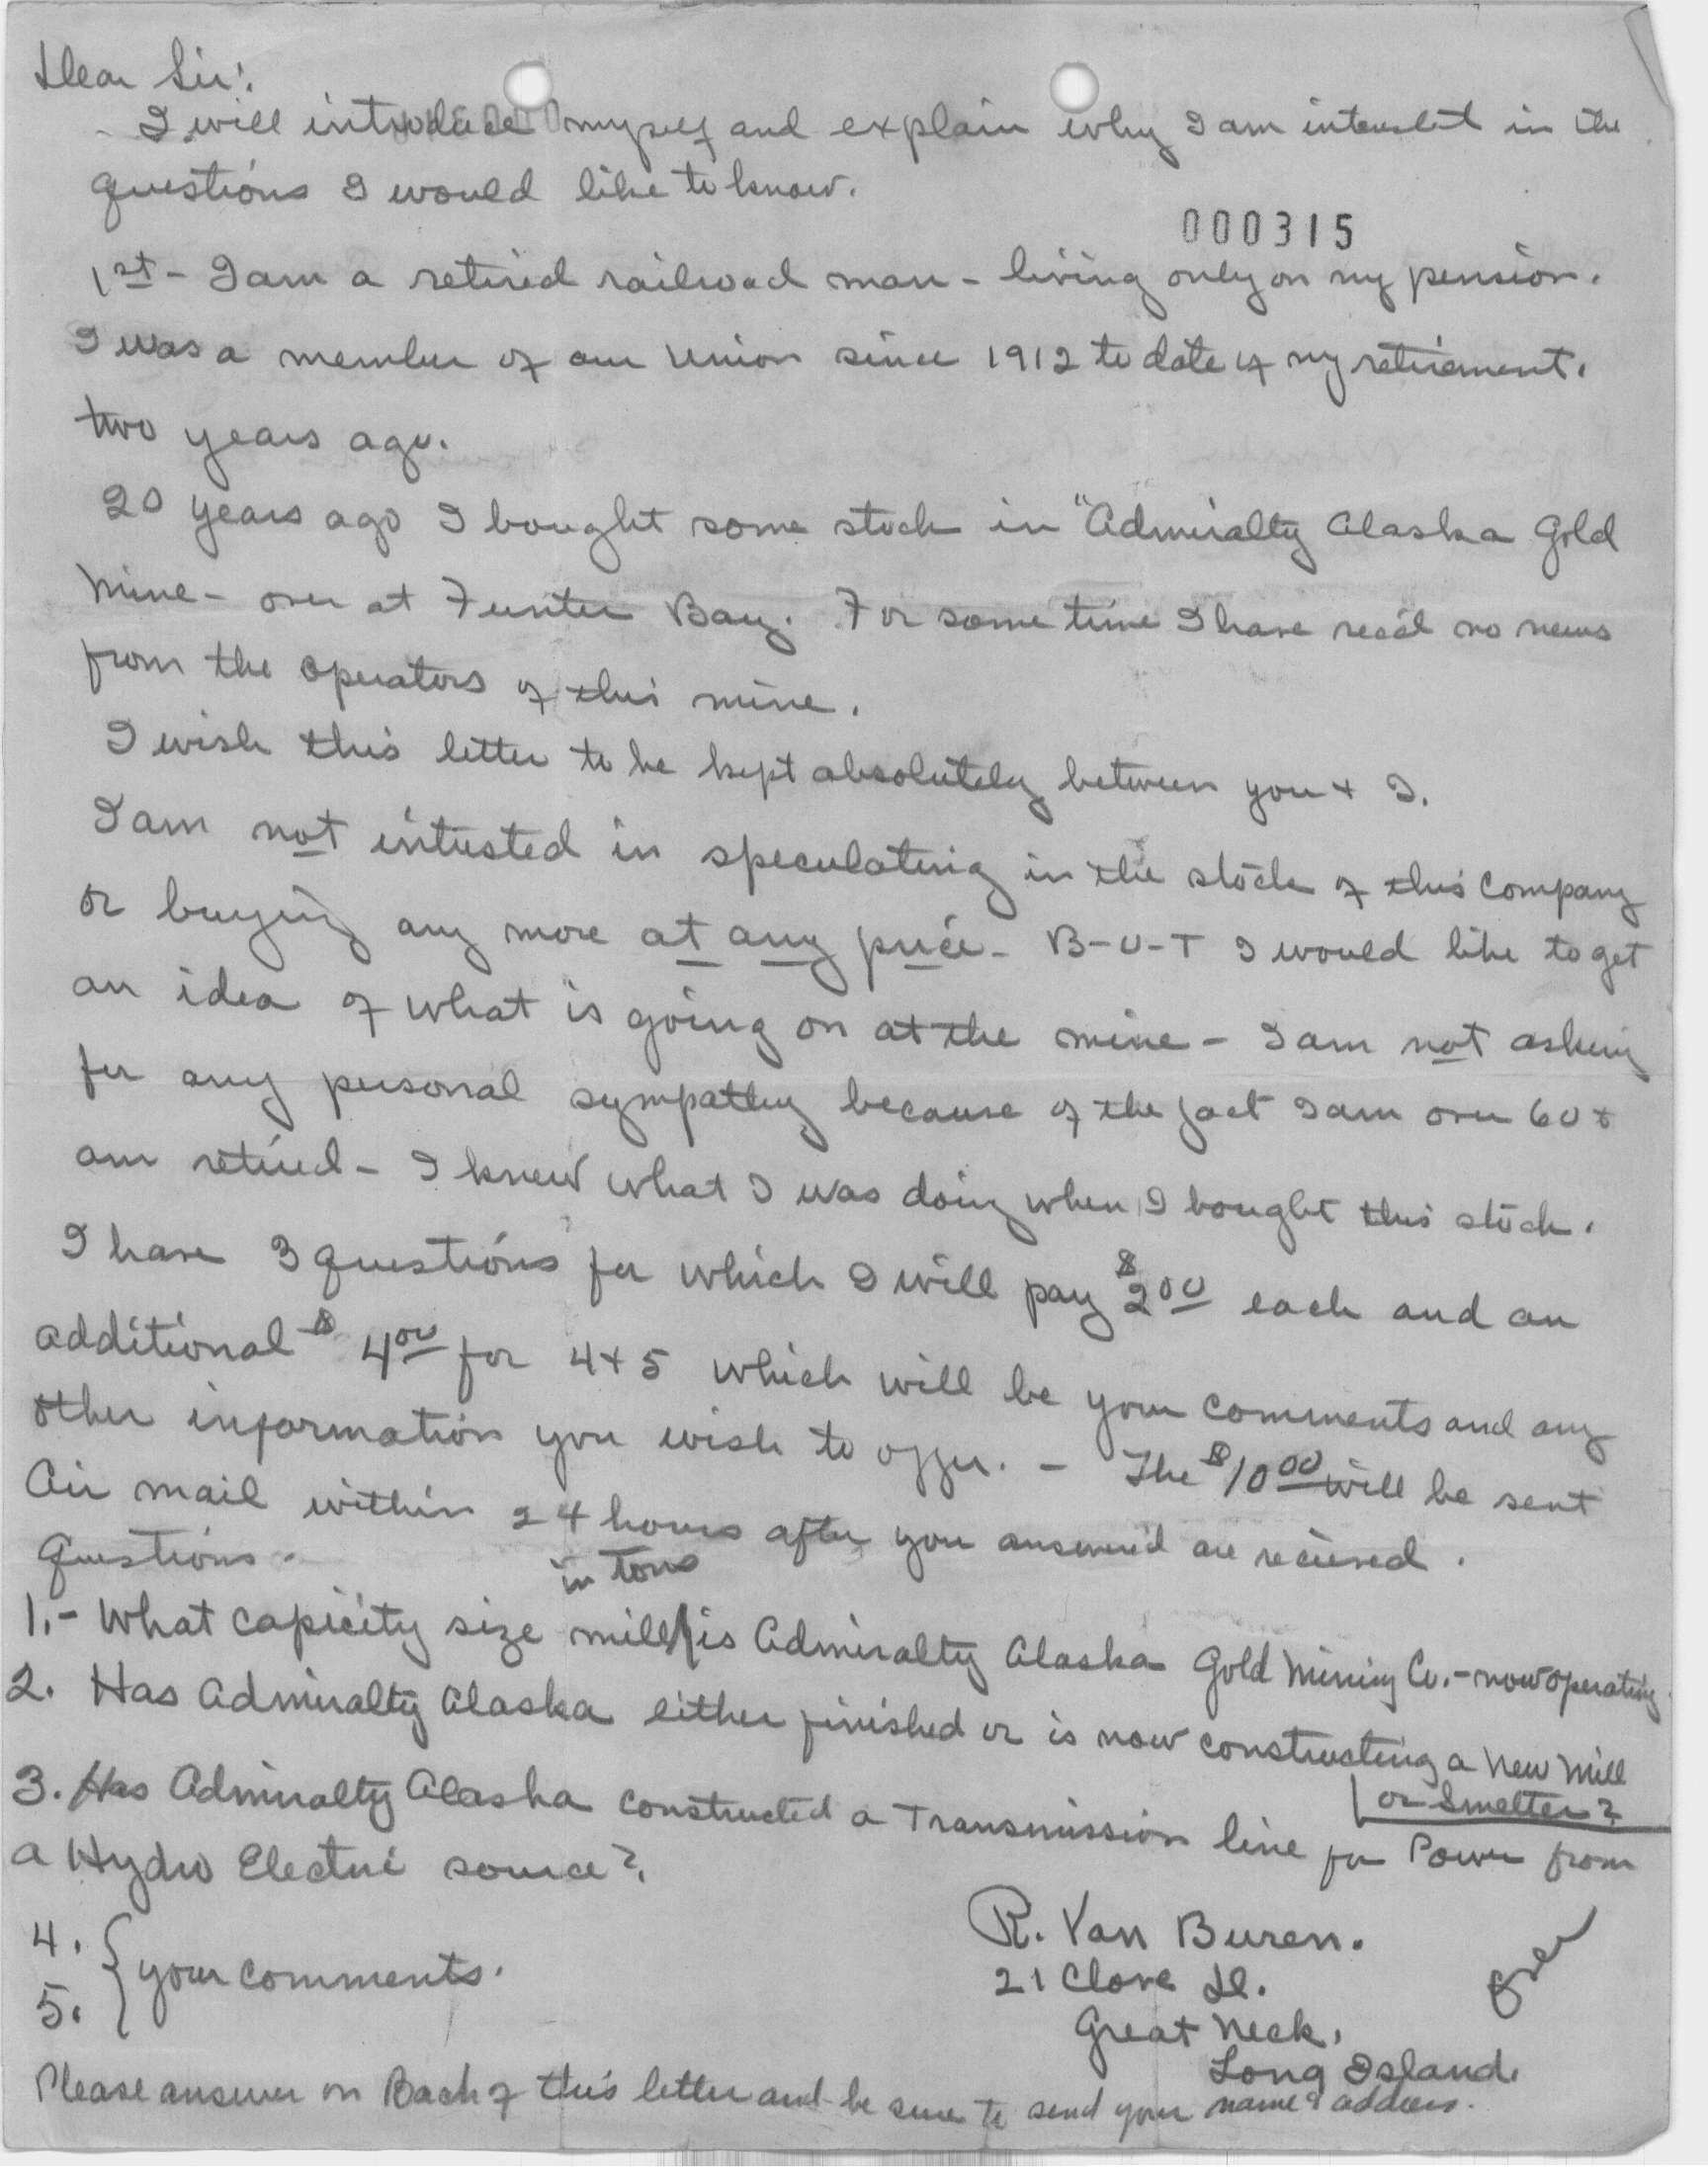 Dear Sir:
I will introduce myself and explain why I am interestet in the
questions I would like to know.
000315
1st - I am a retired railroad man - living only on my pension.
I was a member of our Union since 1912 to date of my retirement.
two years ago.
20 years ago I bought some stock in "Admiralty Alaska Gold
Mine - over at Funter Bay. For some time I have rec'd no news
from the operators of this mine.
I wish this letter to be kept absolutely between you + I.
I am not intrested in speculating in the stock of this Company
or buying any more at any price - B-U-T I would like to get
an idea of what is going on at the mine - I am not asking
for any personal sympathy because of the fact I am over 60 +
am retired - I knew what I was doing when I bought this stock.
I have 3 questions for which I will pay $2.00 each and an
additional $4.00 for 4 + 5 which will be your comments and any
other information you wish to offer. - The $10.00 will be sent
Air mail within 24 hours after you answered are recieved.
Questions.
in Tons
1. - What capicity size mill is Admiralty Alaska Gold Mining Co. - now operating
2. Has Admiralty Alaska either finished or is now constructing a New Mill
or Smelter?
3. Has Admiralty Alaska constructed a Transmission line for Power from
a Hydro Electric source?
4.
5. } your comments.
R. Van Buren.
21 Clove
Great Neck,
Long Island.
over
Please answer on Back of this letter and be sure to send your name & address.